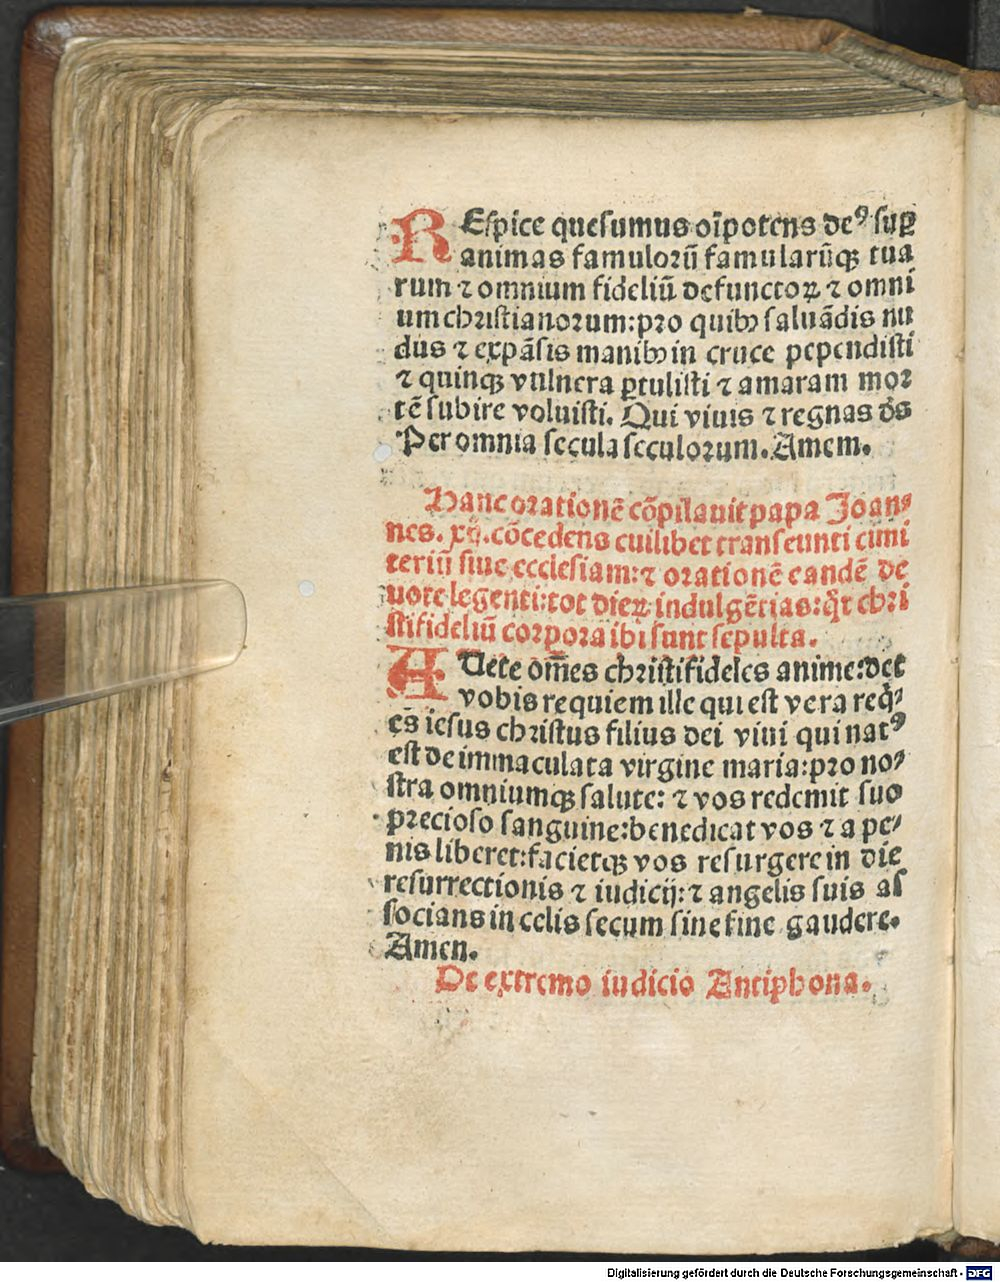 REspice quesumus oīpotens deꝰ suꝑ
animas famuloꝛū famularūqꝫ tua
rum ⁊ omnium fideliū defunctoꝝ ⁊ omni
um chꝛistianoꝛum: pꝛo quibꝫ saluādis nu
dus ⁊ expāsis manibꝫ in cruce pependisti
⁊ quinqꝫ vulnera ꝑtulisti ⁊ amaram moꝛ
tē subire voluisti. Qui viuis ⁊ regnas d̄s
Per omnia secula seculoꝛum. Amem.
Hanc oꝛationē cōpilauit papa Joan⸗
nes. xij. cōcedens cuilibet transeunti cimi
teriū siue ecclesiam: ⁊ oꝛationē eandē de
uote legenti: tot dieꝝ indulgētias: q̄t chꝛi
stifideliū coꝛpoꝛa ibi sunt sepulta.
AUete om̄es chꝛistifideles anime: det
vobis requiem ille qui est vera req̇⸗
es iesus chꝛistus filius dei viui qui natꝰ
est de immaculata virgine maria: pꝛo no⸗
stra omniumqꝫ salute: ⁊ vos redemit suo
pꝛecioso sanguine: benedicat vos ⁊ a pe⸗
nis liberet: facietqꝫ vos resurgere in die
resurrectionis ⁊ iudicij: ⁊ angelis suis as
socians in celis secum sine fine gaudere.
Amen.
De extremo iudicio Antiphona.
Digitalisierung gefördert durch die Deutsche Forschungsgemeinschaft - DFG